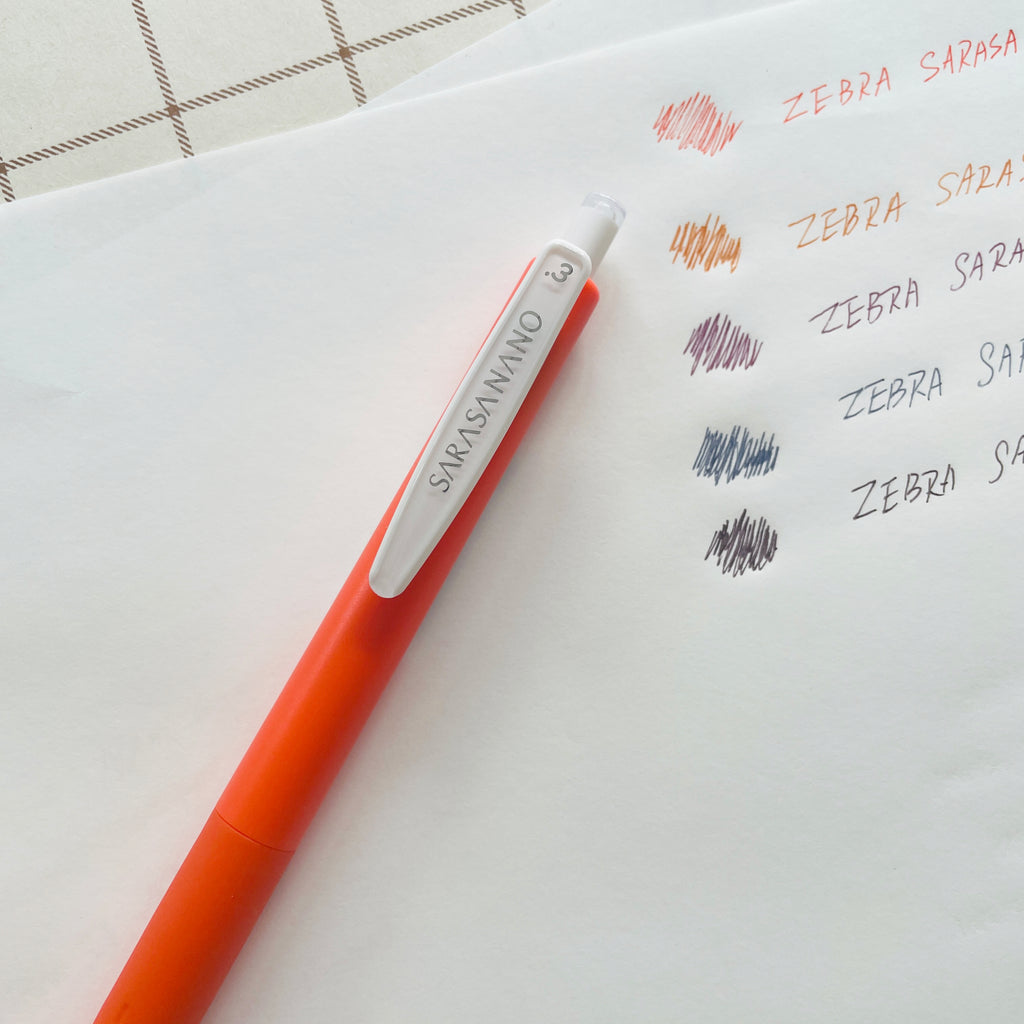 ZEBRA SARASA
ZEBRA SARAS
ZEBRA SARA
ZEBRA SAR
ZEBRA SA
.3
SARASANANO